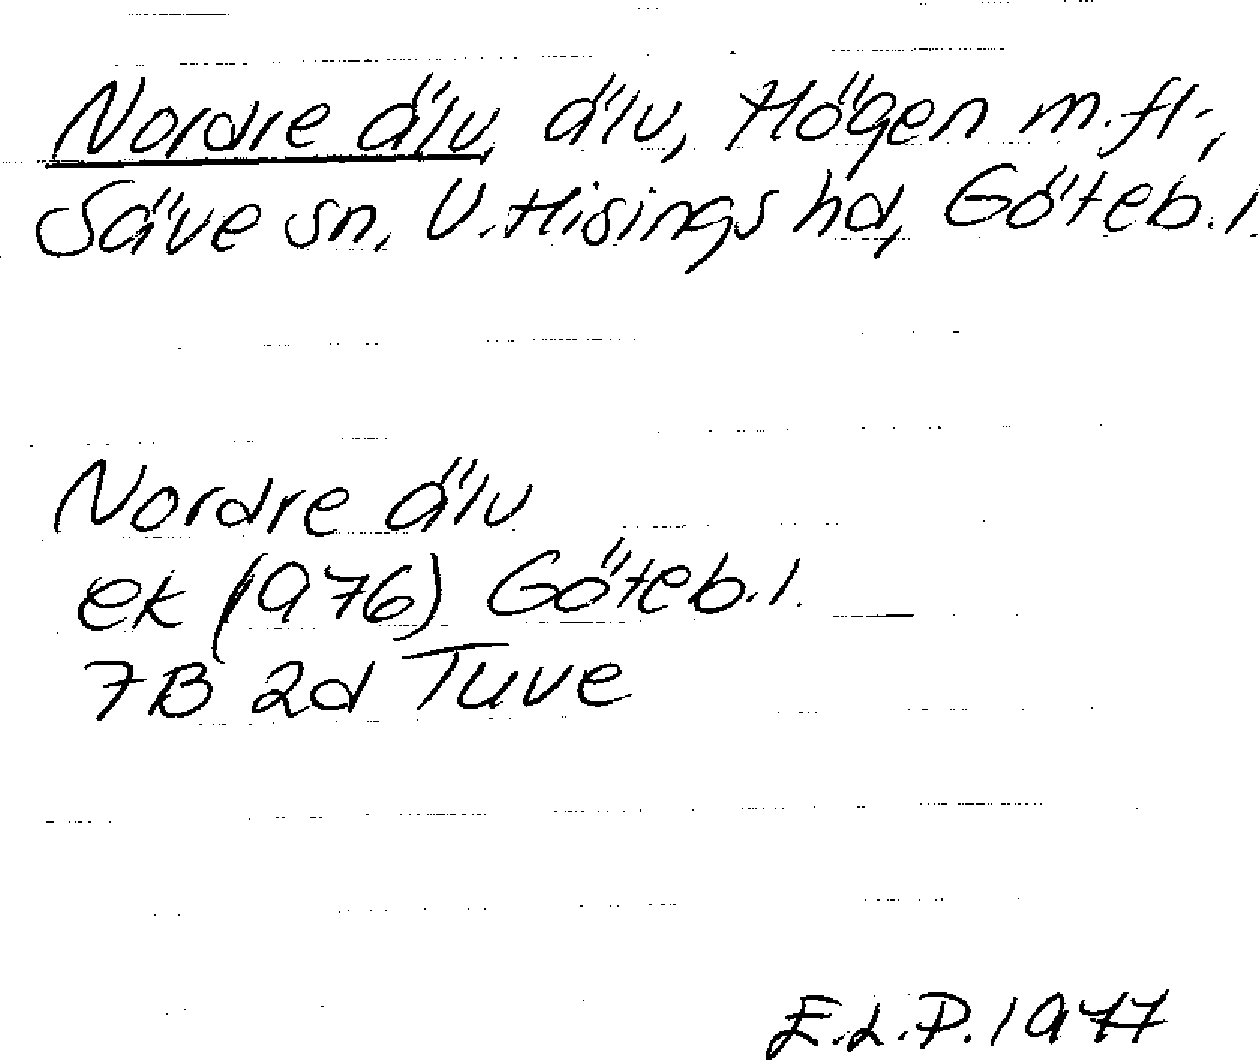 Nordre älv, älv, Högen m.fl.,
Säve sn, V. Hisings hd, Göteb. l.
Nordre älv
ek (1976) Göteb. l.
7B 2d Tuve
E.L.P. 1977